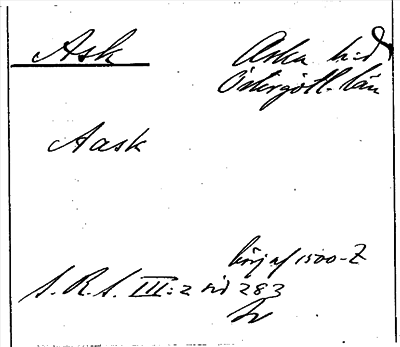 Ask
Aska hd
Östergötl. län
Aask
börj af 1500-t
S. R. S. III:2 sid 283